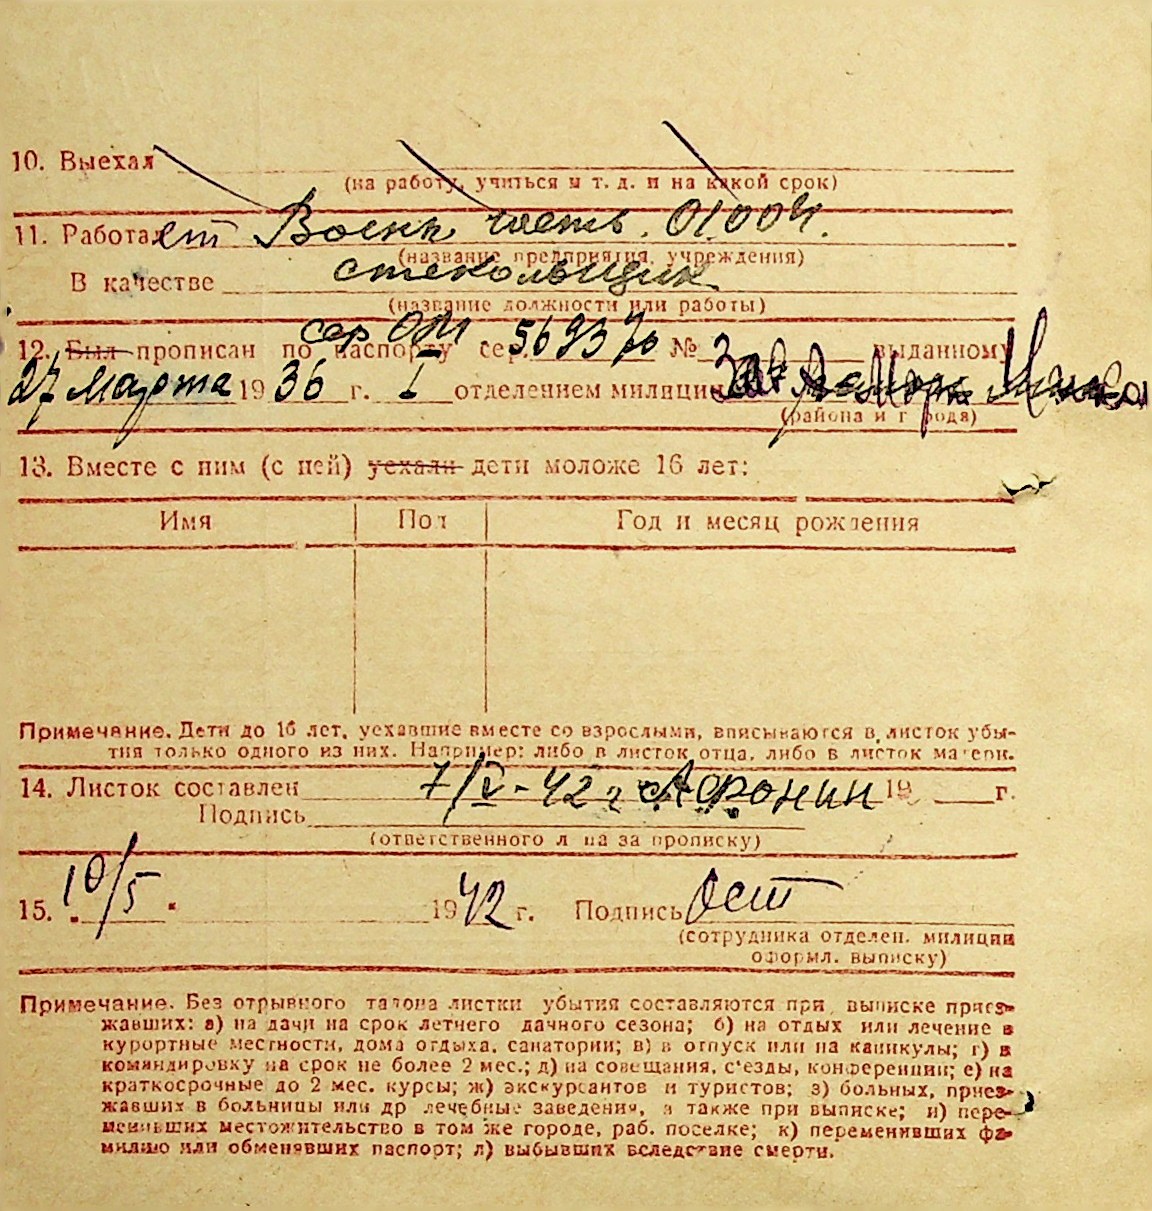 10. Выехал
(на работу, учиться и т. д. и на какой срок)
11. Работает Воен. часть. 01004.
(название предприятия, учреждения)
В качестве стекольщик
(название должности или работы)
сер ОМ 569370
12. Был прописан по паспорту сер. № выданному
27 Марта 1936 г. I отделением милиции
(района и города)
13. Вместе с ним (с ней) уехали дети моложе 16 лет:
Имя Пол Год и месяц рождения
Примечание. Дети до 16 лет, уехавшие вместе со взрослыми, вписываются в листок убы-
тия только одного из них. Например: либо в листок отца, либо в листок матери.
14. Листок составлен 7/V-42 г Афонин 19 г.
Подпись
(ответственного лица за прописку)
15. 10/5 1942 г. Подпись Ост
(сотрудника отделен. милиции
оформл. выписку)
Примечание. Без отрывного талона листки убытия составляются при выписке приез-
жавших: а) на дачи на срок летнего дачного сезона; б) на отдых или лечение в
курортные местности, дома отдыха, санатории; в) в отпуск или на каникулы; г) в
командировку на срок не более 2 мес.; д) на совещания, с'езды, конференции; е) на
краткосрочные до 2 мес. курсы; ж) экскурсантов и туристов; з) больных, приез-
жавших в больницы или др лечебные заведения, а также при выписке; и) пере-
менивших местожительство в том же городе, раб. поселке; к) переменивших фа-
милию или обменявших паспорт; л) выбывших вследствие смерти.